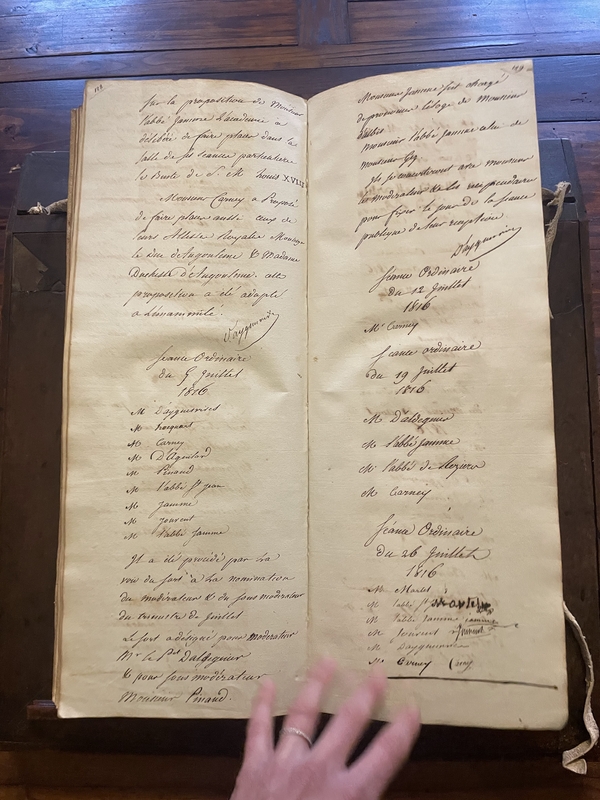 sur la proposition de Monsieur
l'abbé Jamme L'academie a
délibéré de faire placer dans la
salle de ses seances particulieres
le Buste de S. M. Louis XVIII
Monsieur Carney a Proposé
de faire placer aussi ceux de
leurs Altesse Royales Monseigr
le Duc d'Angouleme & Madame
Duchesse d'Angouleme. cette
proposition a été adoptée
a L'unanimité.
Seance Ordinaire
du 5 Juillet
1816
Mr
Mr
Mr Carney
Mr D'Aguilard
Mr Pinaud
Mr l'abbé St jean
Mr Jamme
Mr Jouvent
Mr l'abbé Jamme
Il a été procédé par La
voie du sort à La nomination
du modérateur & du sous modérateur
du trimestre de Juillet
Le sort a désigné pour modérateur
Mr Le Pdt Daldeguier
& pour sous modérateur
Monsieur Pinaud.
Monsieur Jamme s'est chargé
de prononcer l'éloge de Monsieur
Monsieur l'abbé Jamme celui de
monsieur
Ils se concerteront avec Monsieur
le modérateur & Les
pour fixer le jour de la seance
publique de leur reception
Seance Ordinaire
du 12 Juillet
1816
Mr Carney
Seance ordinaire
du 19 Juillet
1816
Mr Daldeguier
Mr l'abbé Jamme
Mr l'abbé de Rozieres
Mr Carney
Seance Ordinaire
du 26 Juillet
1816
Mr
Mr l'abbé St
Mr l'abbé Jamme Jamme
Mr Jouvent Jouvent
Mr
Mr Carney Carney